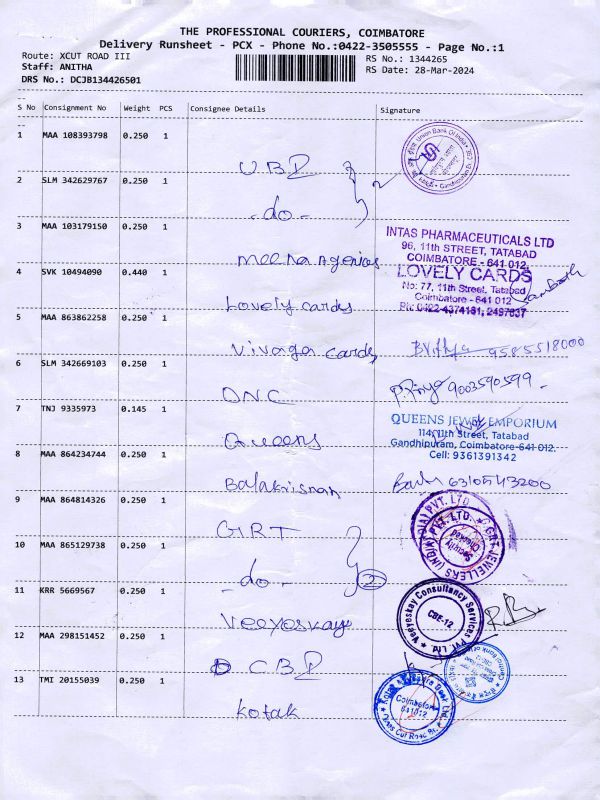 THE PROFESSIONAL COURIERS, COIMBATORE
Delivery Runsheet - PCX - Phone No.:0422-3505555 - Page No.:1
Route: XCUT ROAD III
Staff: ANITHA
DRS No.: DCJB134426501
RS No.: 1344265
RS Date: 28-Mar-2024
S No Consignment No Weight PCS Consignee Details Signature
1 MAA 108393798 0.250 1
UBI
Union Bank Of India
2 SLM 342629767 0.250 1
-do-
3 MAA 103179150 0.250 1
Meena Agenies
INTAS PHARMACEUTICALS LTD
96, 11th STREET, TATABAD
COIMBATORE - 641 012.
4 SVK 10494090 0.440 1
Lovely cards
LOVELY CARDS
No: 77, 11th Street, Tatabad
Coimbatore - 641 012
Ph: 0422-4374181, 2497837
5 MAA 863862258 0.250 1
Vivaga cards
9585518000
6 SLM 342669103 0.250 1
DNC
P.Priya 9003590599
7 TNJ 9335973 0.145 1
Queens
QUEENS JEWEL EMPORIUM
114, 11th Street, Tatabad
Gandhipuram, Coimbatore-641 012.
Cell: 9361391342
8 MAA 864234744 0.250 1
Balakrisnan
6310543200
9 MAA 864814326 0.250 1
GRT
GRT JEWELLERS (INDIA) PVT. LTD.
Security
Checked
10 MAA 865129738 0.250 1
-do-
2
11 KRR 5669567 0.250 1
Veeyeskays
Veeyeskay Consultancy Services Pvt. Ltd.
CBE-12
12 MAA 298151452 0.250 1
CBI
13 TMI 20155039 0.250 1
Kotak
Coimbatore
641012